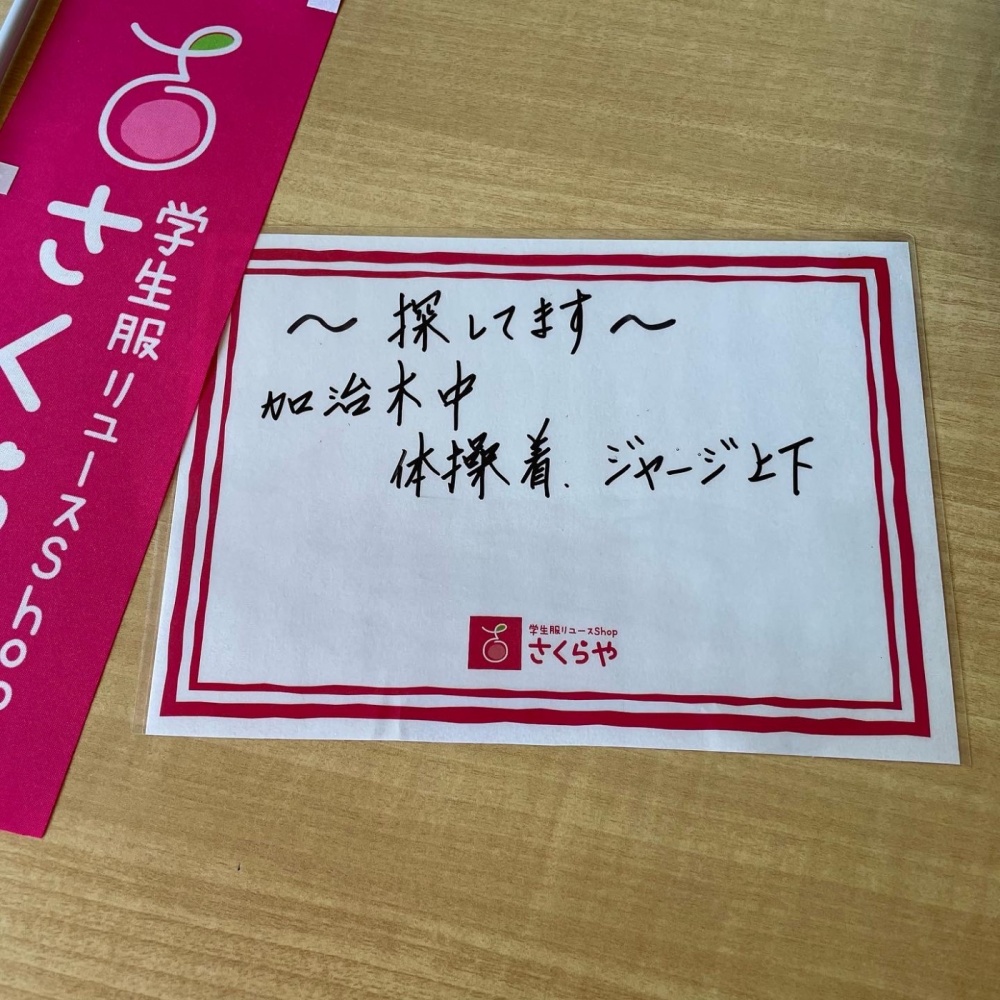 さくら
学生服リユースShop
～探してます～
加治木中
体操着. ジャージ上下
学生服リユースShop
さくらや